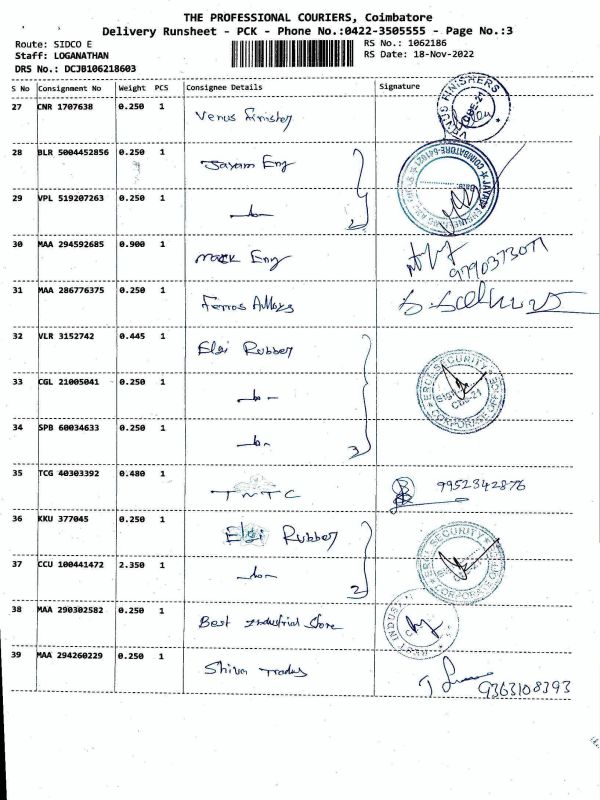 THE PROFESSIONAL COURIERS, Coimbatore
Delivery Runsheet - PCK - Phone No.:0422-3505555 - Page No.:3
Route: SIDCO E
RS No.: 1062186
Staff: LOGANATHAN
RS Date: 18-Nov-2022
DRS No.: DCJB106218603
S No Consignment No Weight PCS Consignee Details Signature
27 CNR 1707638 0.250 1 Venus Finisher
VENUS FINISHERS CBE-21
28 BLR 5004452856 0.250 1 Jayam Eng
COIMBATORE-641021
29 VPL 519207263 0.250 1 2
30 MAA 294592685 0.900 1 Mack Eng 9790373071
31 MAA 286776375 0.250 1 Ferros Alloys
32 VLR 3152742 0.445 1 Elgi Rubber
33 CGL 21005041 0.250 1
ERCL SECURITY CORPORATE OFFICE CBE-21
34 SPB 60034633 0.250 1 3
35 TCG 40303392 0.480 1 TNTC 9952342876
36 KKU 377045 0.250 1 Elgi Rubber
37 CCU 100441472 2.350 1 2
ERCL SECURITY CORPORATE OFFICE
38 MAA 290302582 0.250 1 Best Industrial Store
39 MAA 294260229 0.250 1 Shiva Trades 9363108393